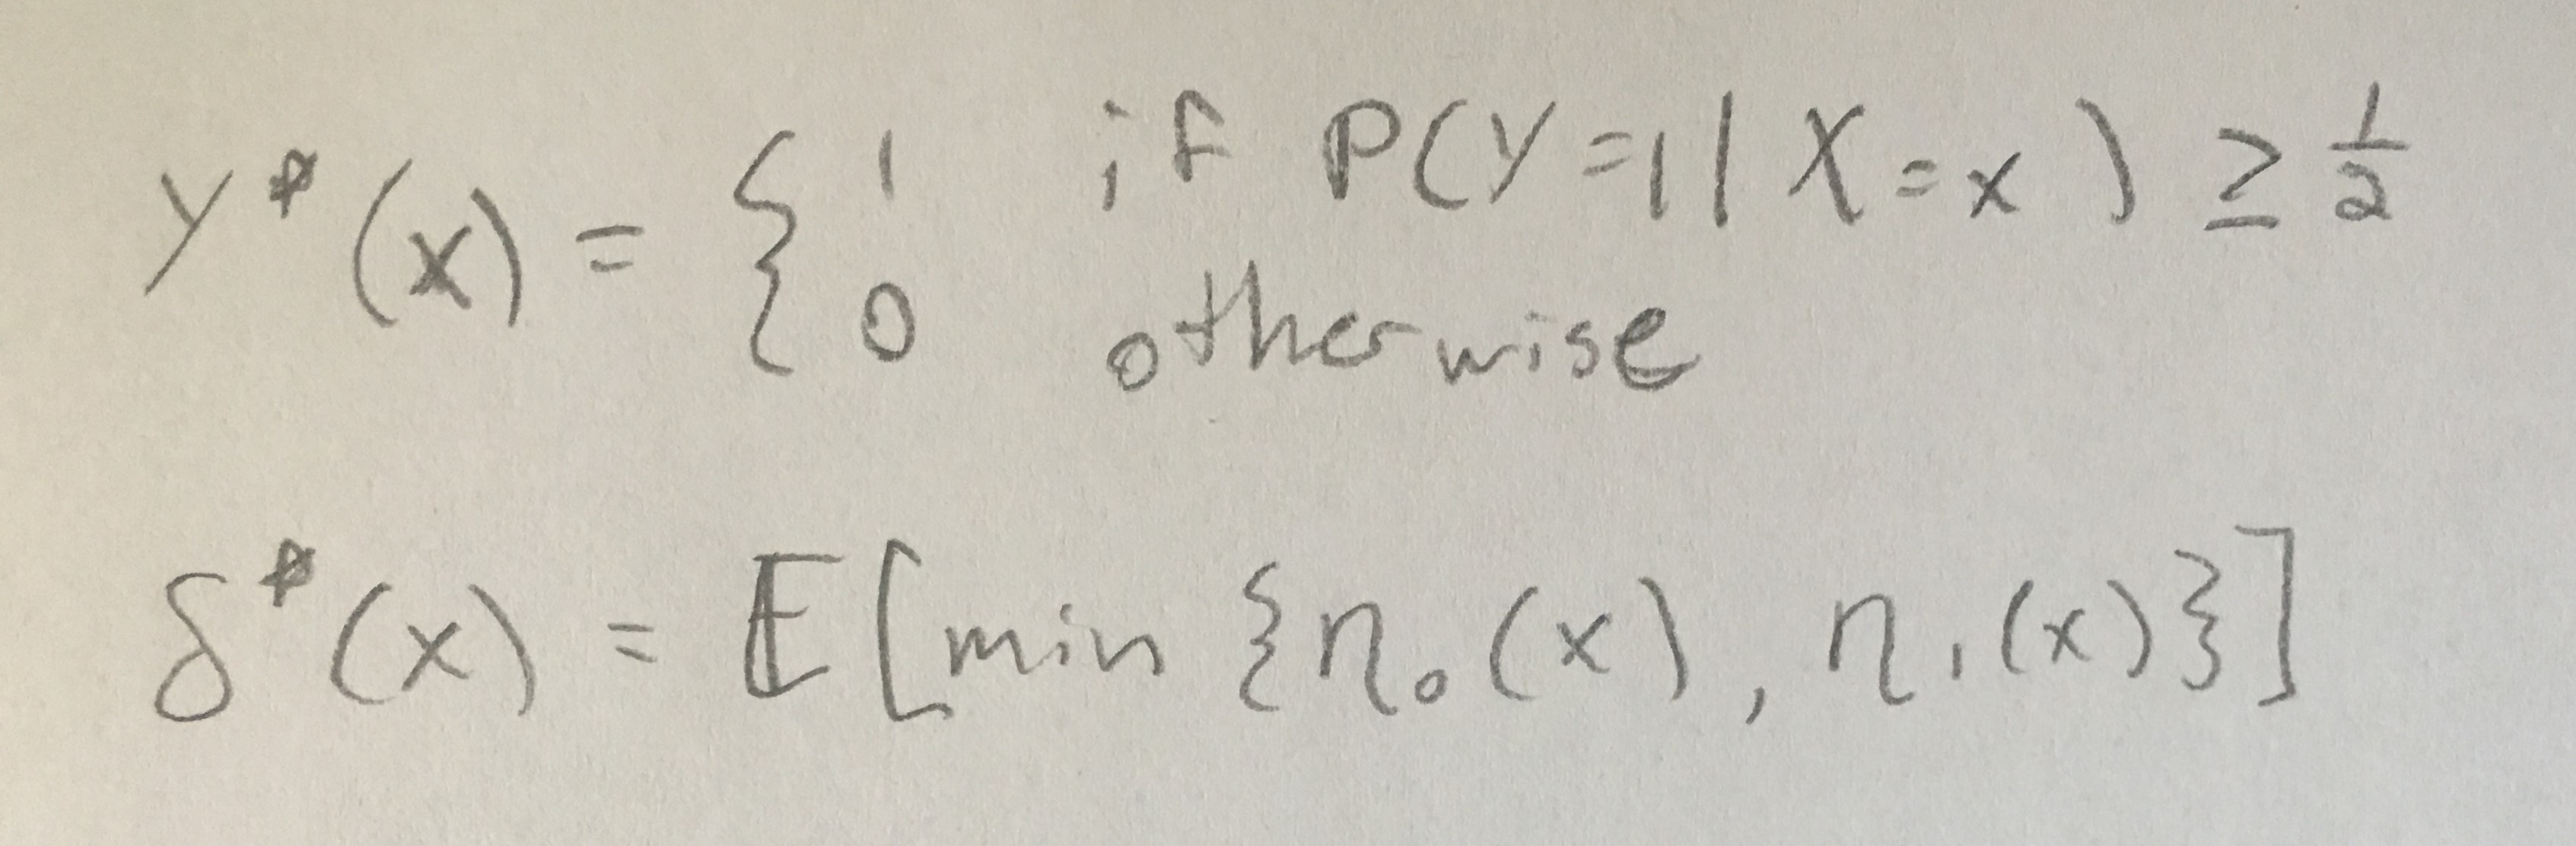 y*(x) = { 1 if P(Y=1|X=x) ≥ 1/2
0 otherwise
δ*(x) = E[min {η₀(x), η₁(x)}]